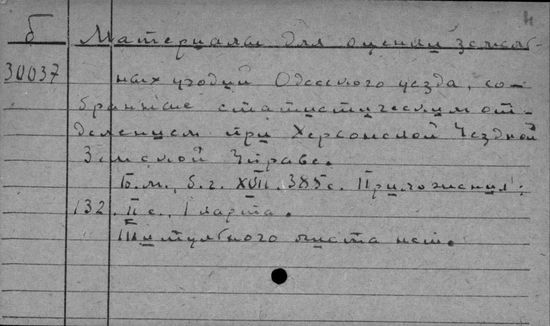 б
Материалы для оценки земель-
30037
ных угодий Одесского уезда, со-
бранные статистическим от-
делением при Херсонской Уездной
Земской Управе.
Б.м., б.г. XVII. 385 с. Приложения:
132. II с., 1 карта.
Титульного листа нет.